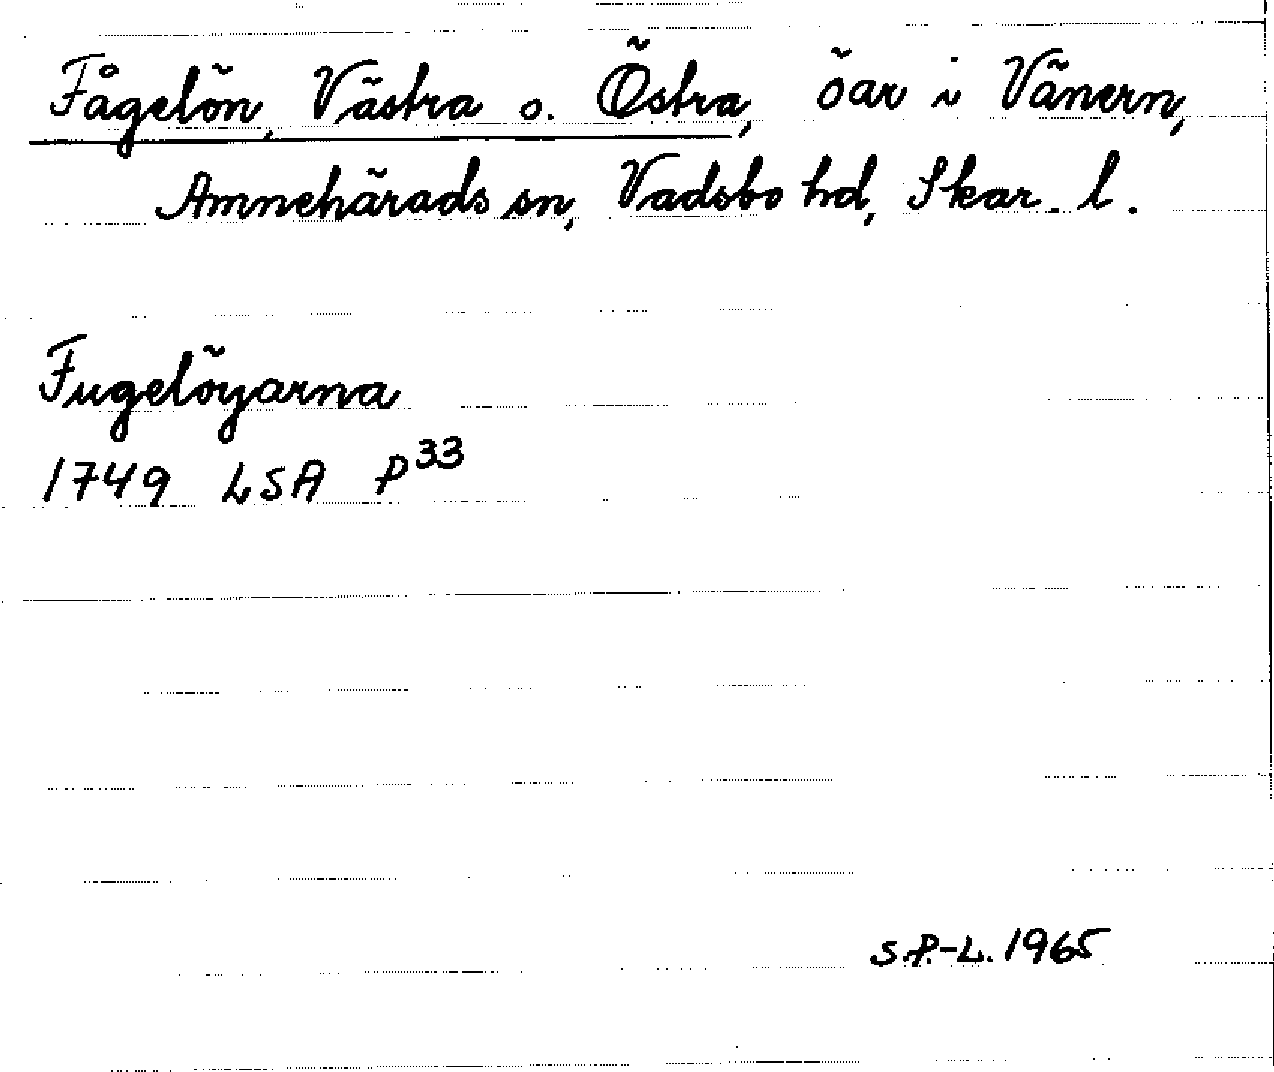 Fågelön, Västra o. Östra, öar i Vänern,
Amnehärads sn, Vadsbo hd, Skar. l.
Fugelöyarna
1749 LSA P33
S.P.-L. 1965